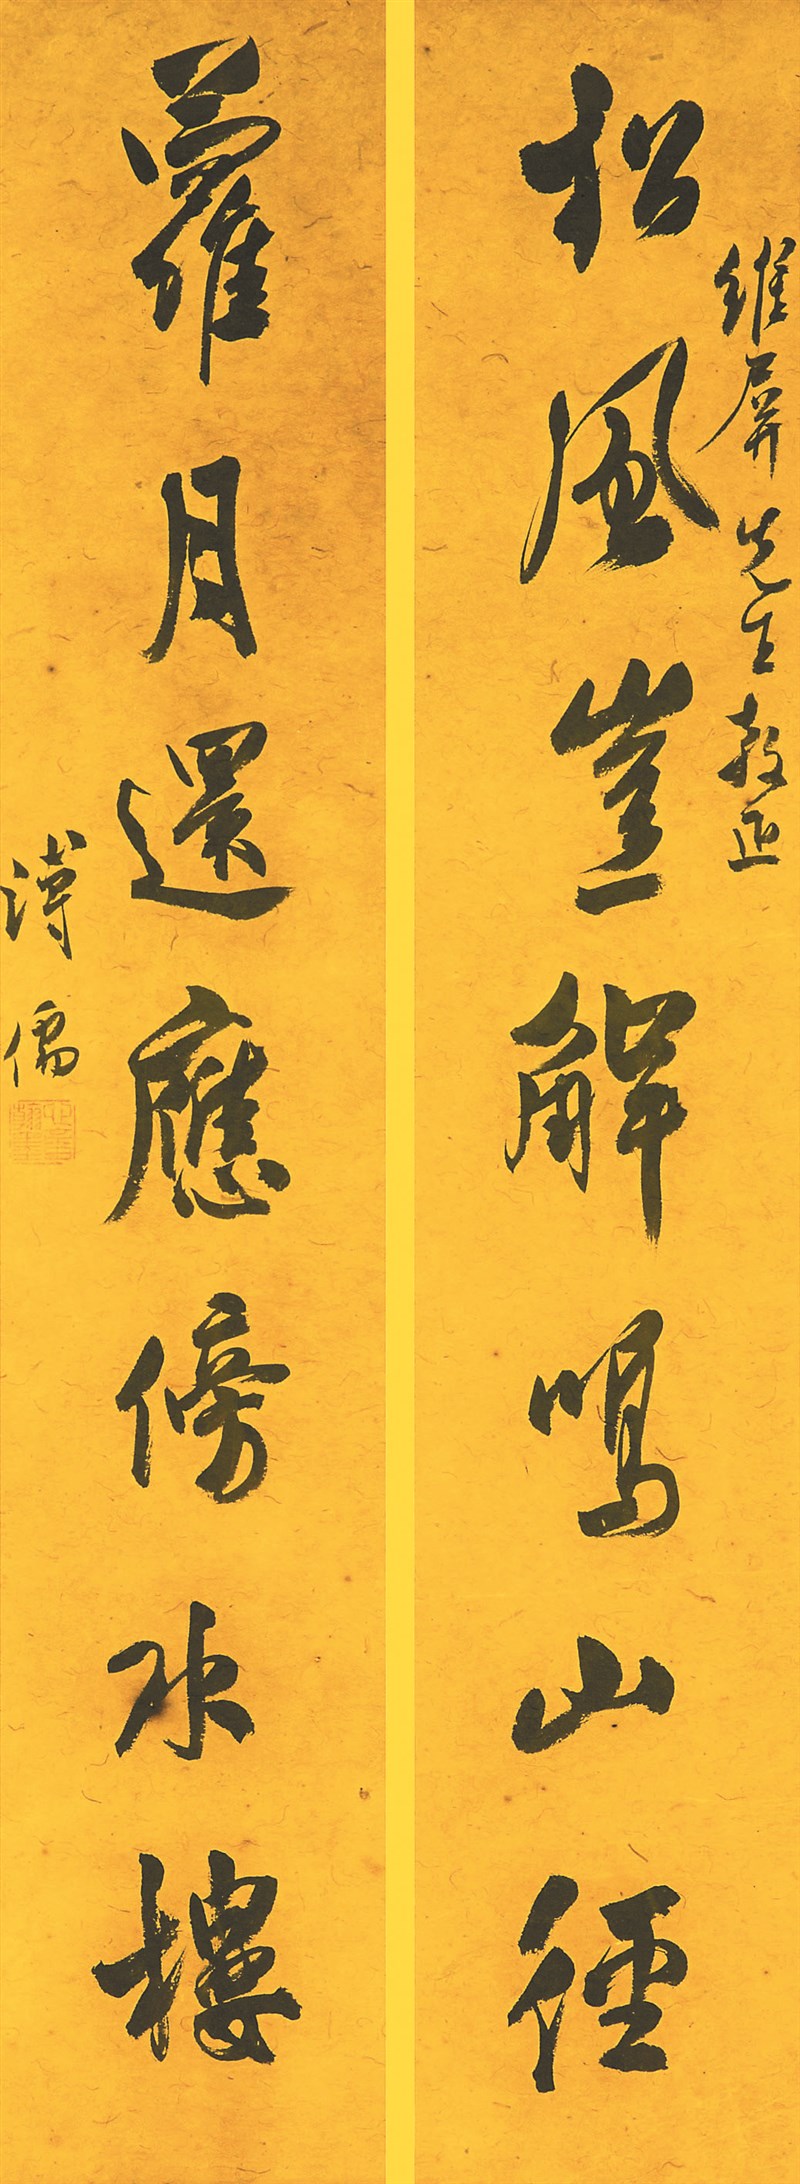 維屏先生教正
松風豈解鳴山徑
蘿月還應傍水樓
溥儒